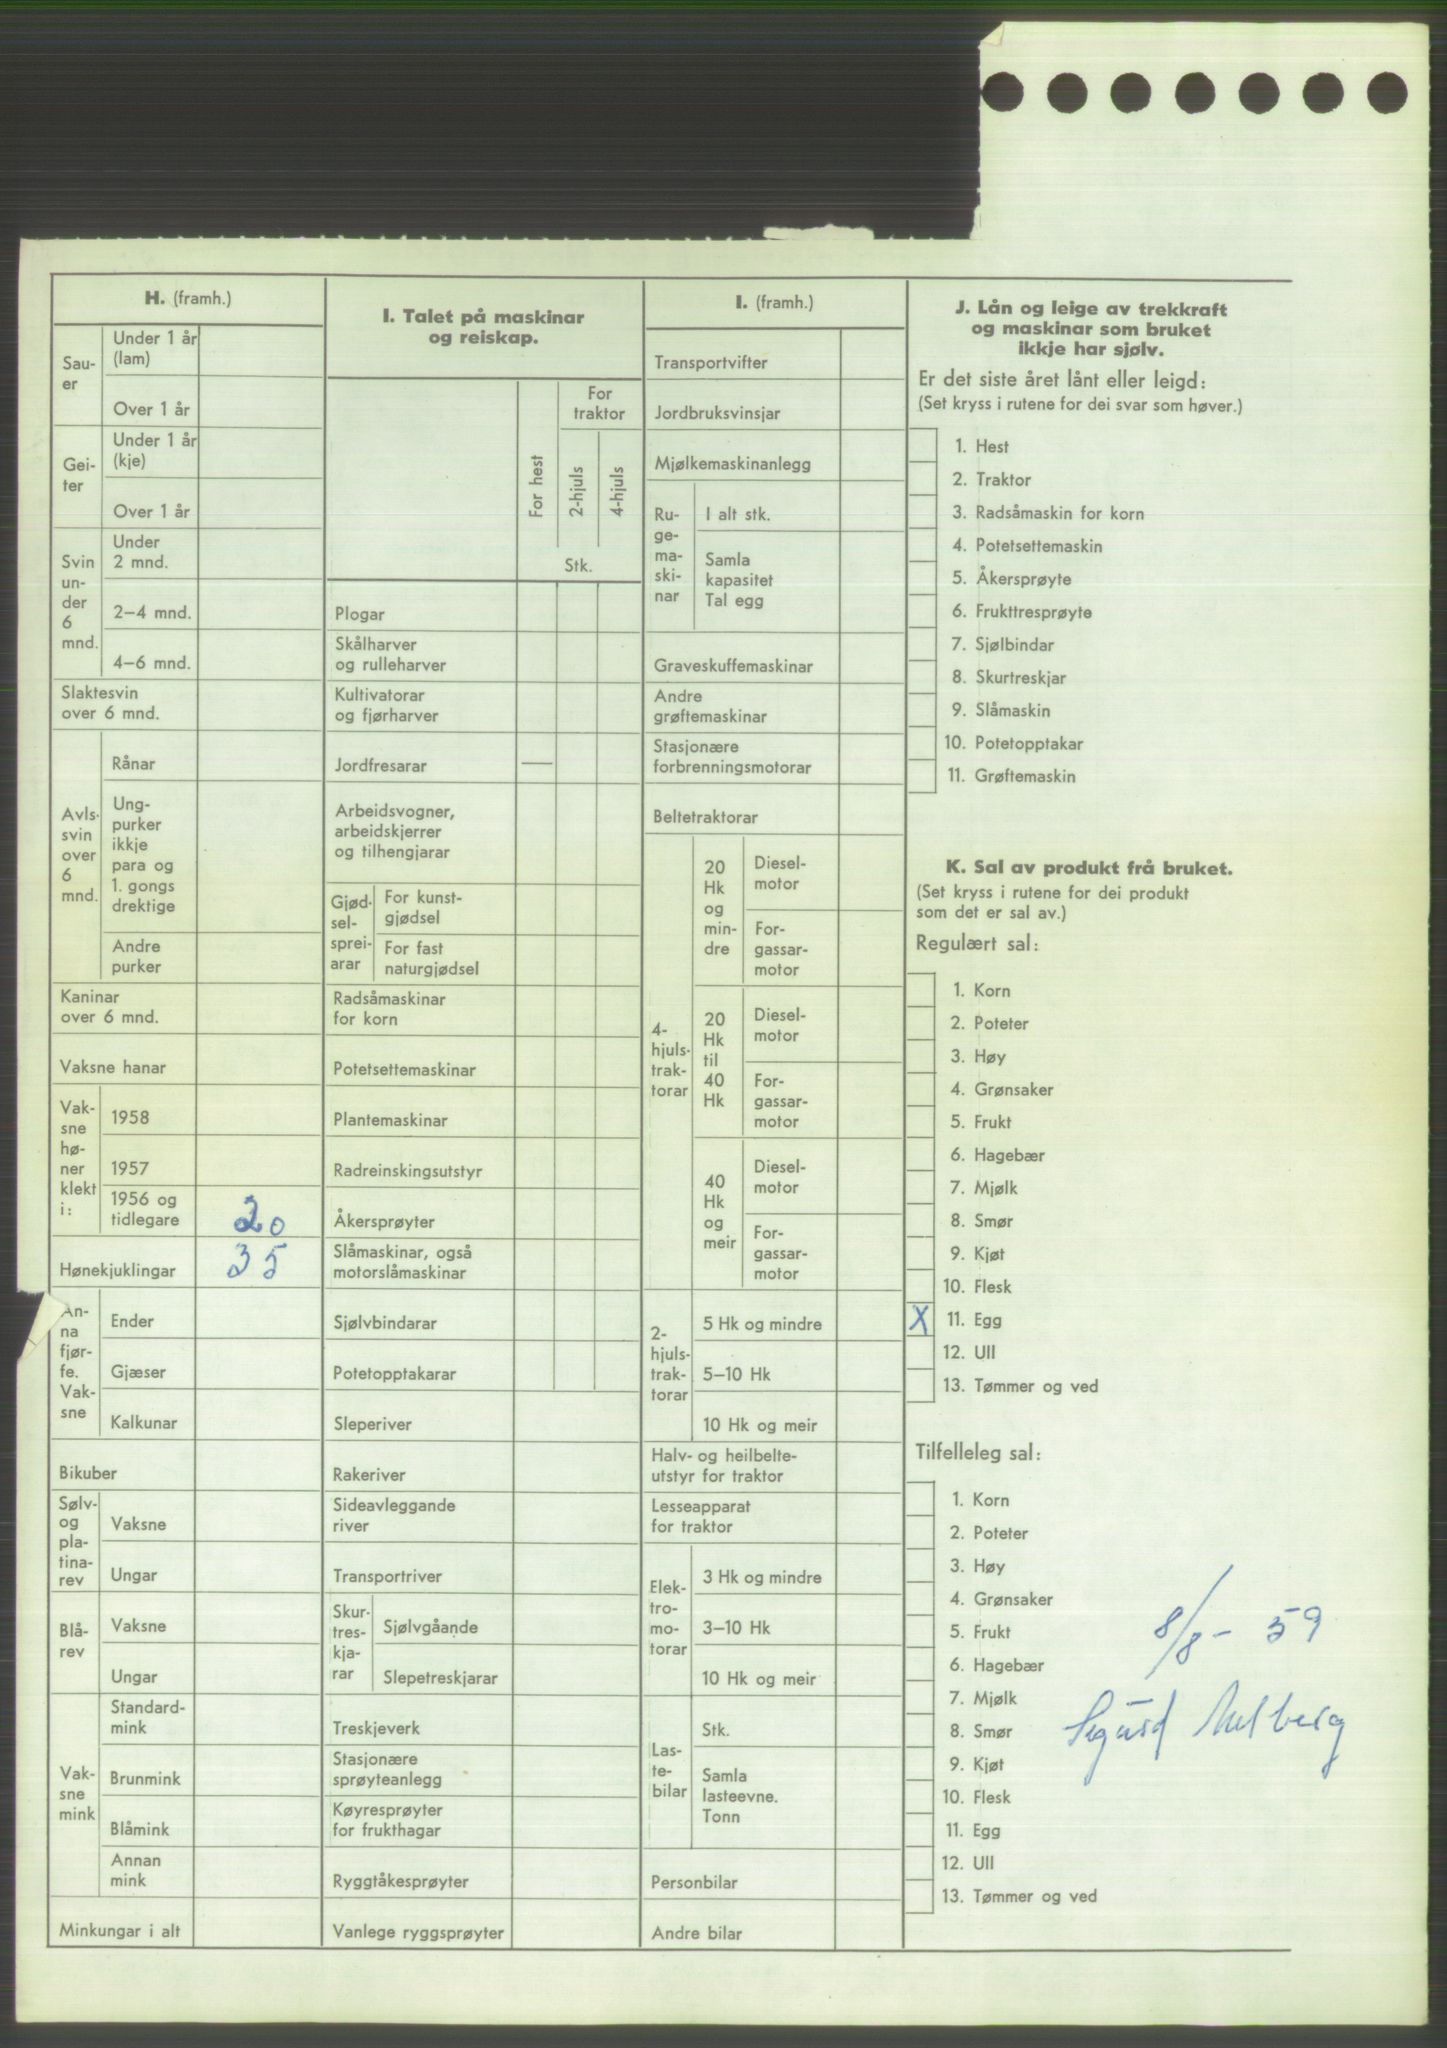 H. (framh.)
Sau-
er
Under 1 år
(lam)
Over 1 år
Gei-
ter
Under 1 år
(kje)
Over 1 år
Svin
un-
der
6
mnd.
Under
2 mnd.
2—4 mnd.
4—6 mnd.
Slaktesvin
over 6 mnd.
Avls-
svin
over
6
mnd.
Rånar
Ung-
purker
ikkje
para og
1. gongs
drektige
Andre
purker
Kaninar
over 6 mnd.
Vaksne hanar
Vak-
sne
hø-
ner
klekt
i:
1958
1957
1956 og
tidlegare 20
Hønekjuklingar 35
An-
na
fjør-
fe.
Vak-
sne
Ender
Gjæser
Kalkunar
Bikuber
Sølv-
og
pla-
tina-
rev
Vaksne
Ungar
Blå-
rev
Vaksne
Ungar
Vak-
sne
mink
Standard-
mink
Brunmink
Blåmink
Annan
mink
Minkungar i alt
I. Talet på maskinar
og reiskap.
For hest
For
traktor
2-hjuls
4-hjuls
Stk.
Plogar
Skålharver
og rulleharver
Kultivatorar
og fjørharver
Jordfresarar —
Arbeidsvogner,
arbeidskjerrer
og tilhengjarar
Gjød-
sel-
sprei-
arar
For kunst-
gjødsel
For fast
naturgjødsel
Radsåmaskinar
for korn
Potetsettemaskinar
Plantemaskinar
Radreinskingsutstyr
Åkersprøyter
Slåmaskinar, også
motorslåmaskinar
Sjølvbindarar
Potetopptakarar
Sleperiver
Rakeriver
Sideavleggande
river
Transportriver
Skur-
tres-
kja-
rar
Sjølvgåande
Slepetreskjarar
Treskjeverk
Stasjonære
sprøyteanlegg
Køyresprøyter
for frukthagar
Ryggtåkesprøyter
Vanlege ryggsprøyter
I. (framh.)
Transportvifter
Jordbruksvinsjar
Mjølkemaskinanlegg
Ru-
ge-
ma-
ski-
nar
I alt stk.
Samla
kapasitet
Tal egg
Graveskuffemaskinar
Andre
grøftemaskinar
Stasjonære
forbrenningsmotorar
Beltetraktorar
4-
hjuls-
trak-
torar
20
Hk
og
min-
dre
Diesel-
motor
For-
gassar-
motor
20
Hk
til
40
Hk
Diesel-
motor
For-
gassar-
motor
40
Hk
og
meir
Diesel-
motor
For-
gassar-
motor
2-
hjuls-
trak-
torar
5 Hk og mindre
5—10 Hk
10 Hk og meir
Halv- og heilbelte-
utstyr for traktor
Lesseapparat
for traktor
Elek-
tro-
mo-
torar
3 Hk og mindre
3—10 Hk
10 Hk og meir
Las-
te-
bilar
Stk.
Samla
lasteevne.
Tonn
Personbilar
Andre bilar
J. Lån og leige av trekkraft
og maskinar som bruket
ikkje har sjølv.
Er det siste året lånt eller leigd:
(Set kryss i rutene for dei svar som høver.)
1. Hest
2. Traktor
3. Radsåmaskin for korn
4. Potetsettemaskin
5. Åkersprøyte
6. Frukttresprøyte
7. Sjølbindar
8. Skurtreskjar
9. Slåmaskin
10. Potetopptakar
11. Grøftemaskin
K. Sal av produkt frå bruket.
(Set kryss i rutene for dei produkt
som det er sal av.)
Regulært sal:
1. Korn
2. Poteter
3. Høy
4. Grønsaker
5. Frukt
6. Hagebær
7. Mjølk
8. Smør
9. Kjøt
10. Flesk
X 11. Egg
12. Ull
13. Tømmer og ved
Tilfelleleg sal:
1. Korn
2. Poteter
3. Høy
4. Grønsaker
5. Frukt
6. Hagebær
7. Mjølk
8. Smør
9. Kjøt
10. Flesk
11. Egg
12. Ull
13. Tømmer og ved
8/8 - 59
Sigurd